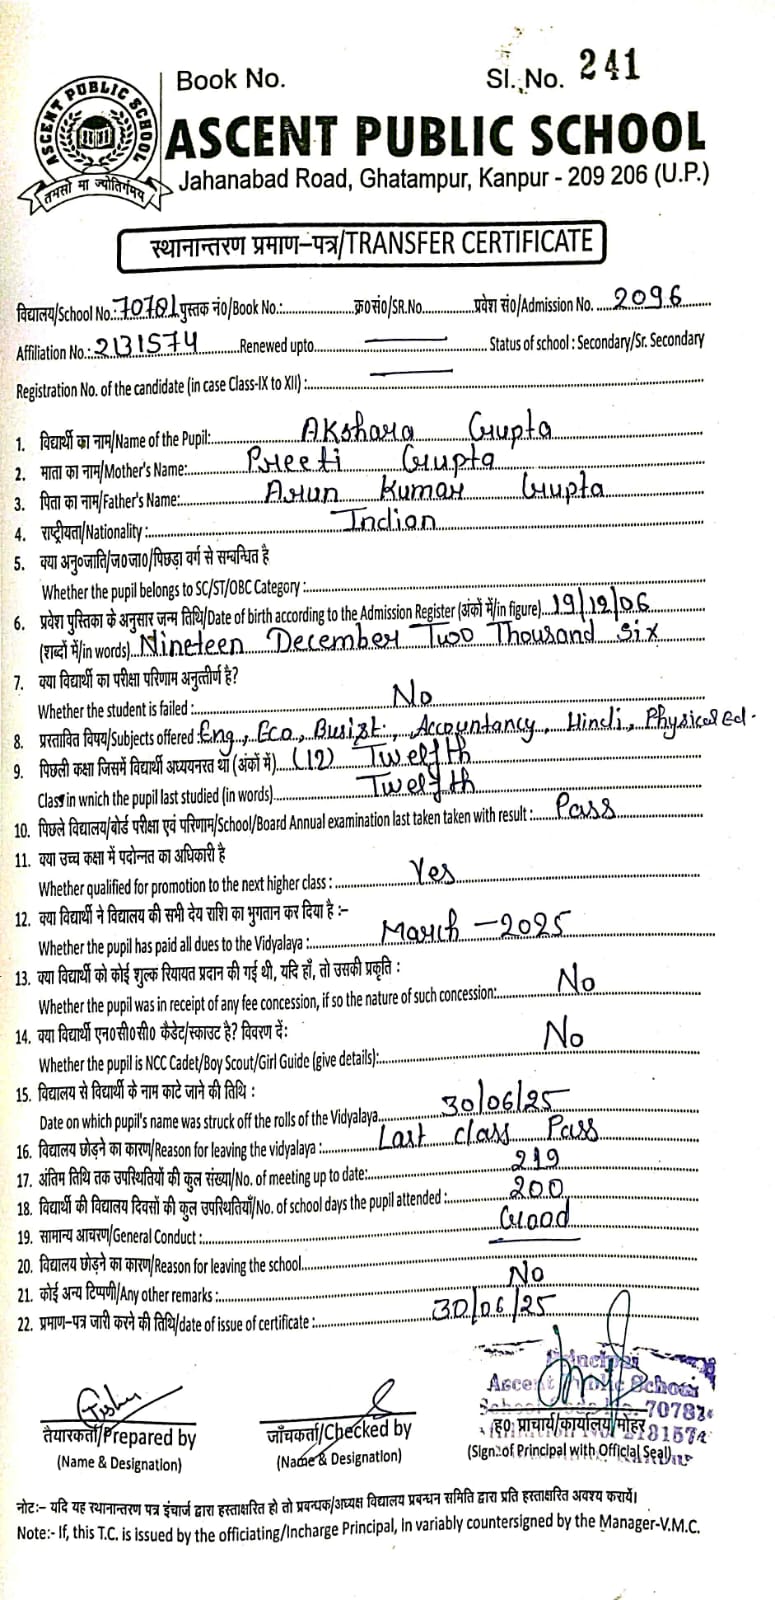 Book No.
Sl. No. 241
ASCENT PUBLIC SCHOOL
तमसो मा ज्योतिर्गमय
ASCENT PUBLIC SCHOOL
Jahanabad Road, Ghatampur, Kanpur - 209 206 (U.P.)
स्थानान्तरण प्रमाण-पत्र/TRANSFER CERTIFICATE
विद्यालय/School No.: 70781 पुस्तक नं0/Book No.: क्र0सं0/SR.No. प्रवेश सं0/Admission No. 2096
Affiliation No.: 2131574 Renewed upto Status of school : Secondary/Sr. Secondary
Registration No. of the candidate (in case Class-IX to XII) :
1. विद्यार्थी का नाम/Name of the Pupil: Akshara Gupta
2. माता का नाम/Mother's Name: Preeti Gupta
3. पिता का नाम/Father's Name: Arun Kumar Gupta
4. राष्ट्रीयता/Nationality : Indian
5. क्या अनु०जाति/ज०जा०/पिछड़ा वर्ग से सम्बन्धित है
Whether the pupil belongs to SC/ST/OBC Category :
6. प्रवेश पुस्तिका के अनुसार जन्म तिथि/Date of birth according to the Admission Register (अंकों में/in figure) 19/12/06
(शब्दों में/in words) Nineteen December Two Thousand Six
7. क्या विद्यार्थी का परीक्षा परिणाम अनुत्तीर्ण है?
Whether the student is failed : No
8. प्रस्तावित विषय/Subjects offered Eng., Eco, Busi st., Accountancy, Hindi, Physical Ed.
9. पिछली कक्षा जिसमें विद्यार्थी अध्ययनरत था (अंकों में) (12) Twelfth
Class in wnich the pupil last studied (in words) Twelfth
10. पिछले विद्यालय/बोर्ड परीक्षा एवं परिणाम/School/Board Annual examination last taken taken with result : Pass
11. क्या उच्च कक्षा में पदोन्नत का अधिकारी है
Whether qualified for promotion to the next higher class : Yes
12. क्या विद्यार्थी ने विद्यालय की सभी देय राशि का भुगतान कर दिया है :-
Whether the pupil has paid all dues to the Vidyalaya : March - 2025
13. क्या विद्यार्थी को कोई शुल्क रियायत प्रदान की गई थी, यदि हाँ, तो उसकी प्रकृति :
Whether the pupil was in receipt of any fee concession, if so the nature of such concession: No
14. क्या विद्यार्थी एन०सी०सी० कैडेट/स्काउट है? विवरण दें:
Whether the pupil is NCC Cadet/Boy Scout/Girl Guide (give details): No
15. विद्यालय से विद्यार्थी के नाम काटे जाने की तिथि :
Date on which pupil's name was struck off the rolls of the Vidyalaya 30/06/25
16. विद्यालय छोड़ने का कारण/Reason for leaving the vidyalaya : Last class Pass
17. अंतिम तिथि तक उपस्थितियों की कुल संख्या/No. of meeting up to date: 219
18. विद्यार्थी की विद्यालय दिवसों की कुल उपस्थितियाँ/No. of school days the pupil attended : 200
19. सामान्य आचरण/General Conduct : Good
20. विद्यालय छोड़ने का कारण/Reason for leaving the school
21. कोई अन्य टिप्पणी/Any other remarks : No
22. प्रमाण-पत्र जारी करने की तिथि/date of issue of certificate : 30/06/25
Principal
Ascent Public School
70781
2131574
तैयारकर्ता/Prepared by
(Name & Designation)
जाँचकर्ता/Checked by
(Name & Designation)
ह0 प्राचार्य/कार्यालय/मोहर
(Sign. of Principal with Official Seal)
नोट:- यदि यह स्थानान्तरण पत्र इंचार्ज द्वारा हस्ताक्षरित हो तो प्रबन्धक/अध्यक्ष विद्यालय प्रबन्धन समिति द्वारा प्रति हस्ताक्षरित अवश्य करायें।
Note:- If, this T.C. is issued by the officiating/Incharge Principal, In variably countersigned by the Manager-V.M.C.